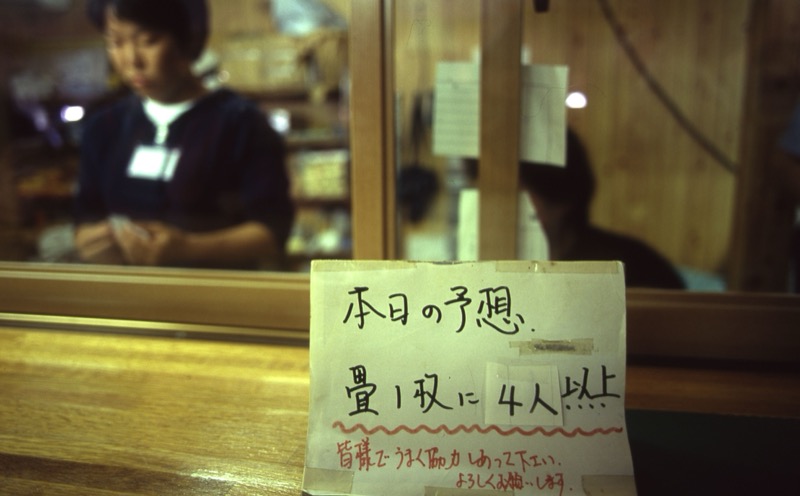 本日の予想.
畳1枚に4人以上
皆様でうまく協力しあって下さい.
よろしくお願いします.